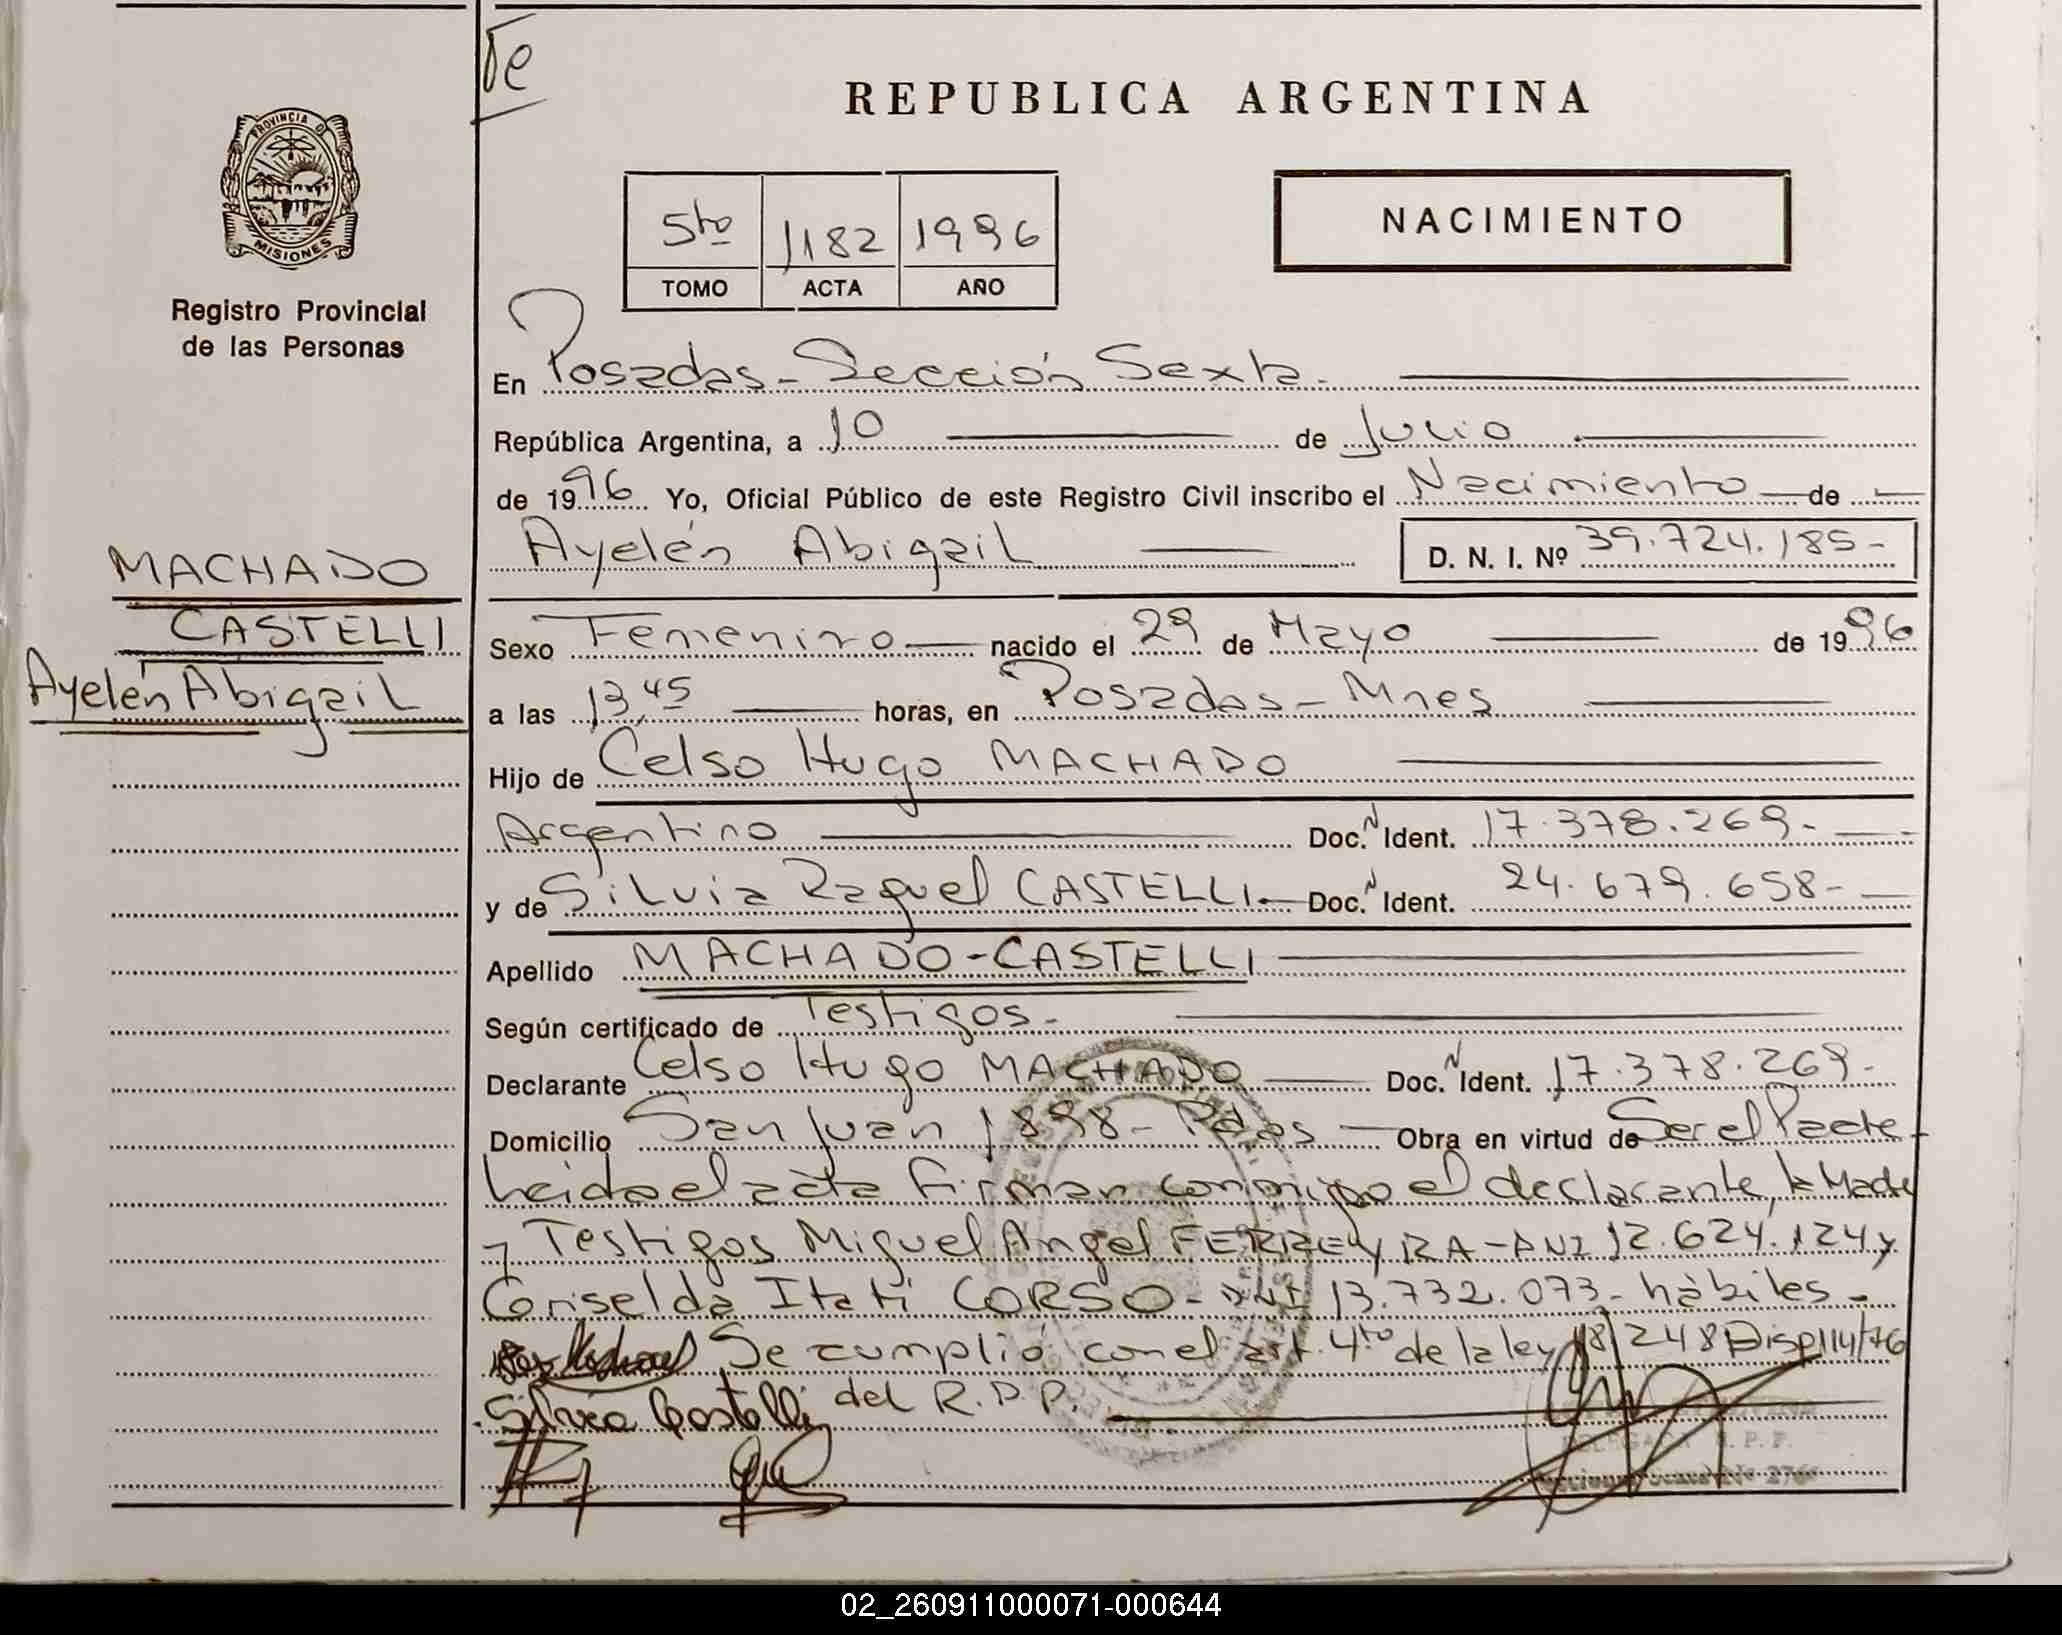 de
REPUBLICA ARGENTINA
PROVINCIA D
MISIONES
Registro Provincial
de las Personas
5to 1182 1996
TOMO ACTA AÑO
NACIMIENTO
En Posadas - Sección Sexta.
República Argentina, a 10 de Julio
de 1996 Yo, Oficial Público de este Registro Civil inscribo el Nacimiento de
Ayelén Abigail D. N. I. Nº 39.724.185-
MACHADO
CASTELLI
Ayelén Abigail
Sexo Femenino nacido el 29 de Mayo de 1996
a las 13,45 horas, en Posadas - Mnes
Hijo de Celso Hugo MACHADO
Argentino Doc. N Ident. 17.378.269-
y de Silvia Raquel CASTELLI Doc. N Ident. 24.679.658-
Apellido MACHADO-CASTELLI
Según certificado de Testigos-
Declarante Celso Hugo MACHADO Doc. N Ident. 17.378.269-
Domicilio San Juan 1898- Pdas Obra en virtud de Ser el Padre
Leida el acta firman conmigo el declarante, la Madre
y Testigos Miguel Angel FERREYRA - DNI 12.624.124 y
Griselda Itati CORSO - DNI 13.732.073- hábiles-
Se cumplió con el art. 4to de la ley 18/248 Disp 114/76
Silvia Castelli del R.P.P.
DELEGADA R. P. P.
02_260911000071-000644